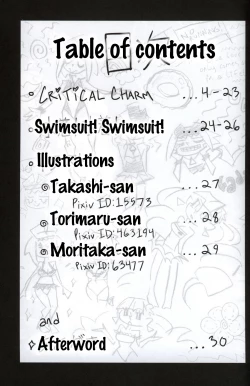 Table of contents
目次
CRiTiCAL CHARM ...4-23
Swimsuit! Swimsuit! ...24-26
Illustrations
Takashi-san ...27
Pixiv ID:15573
Torimaru-san ...28
Pixiv ID:463194
Moritaka-san ...29
Pixiv ID:63477
and
Afterword ...30